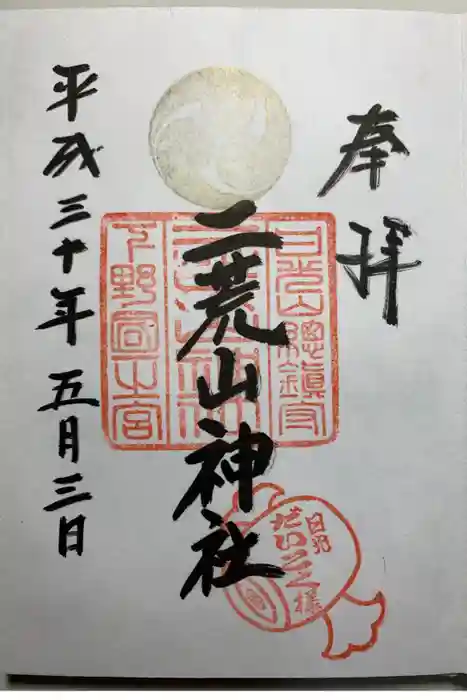 奉拝
二荒山神社
日光山總鎮守
二荒山神社
下野國一之宮
日光
だいこく様
平成三十年五月三日